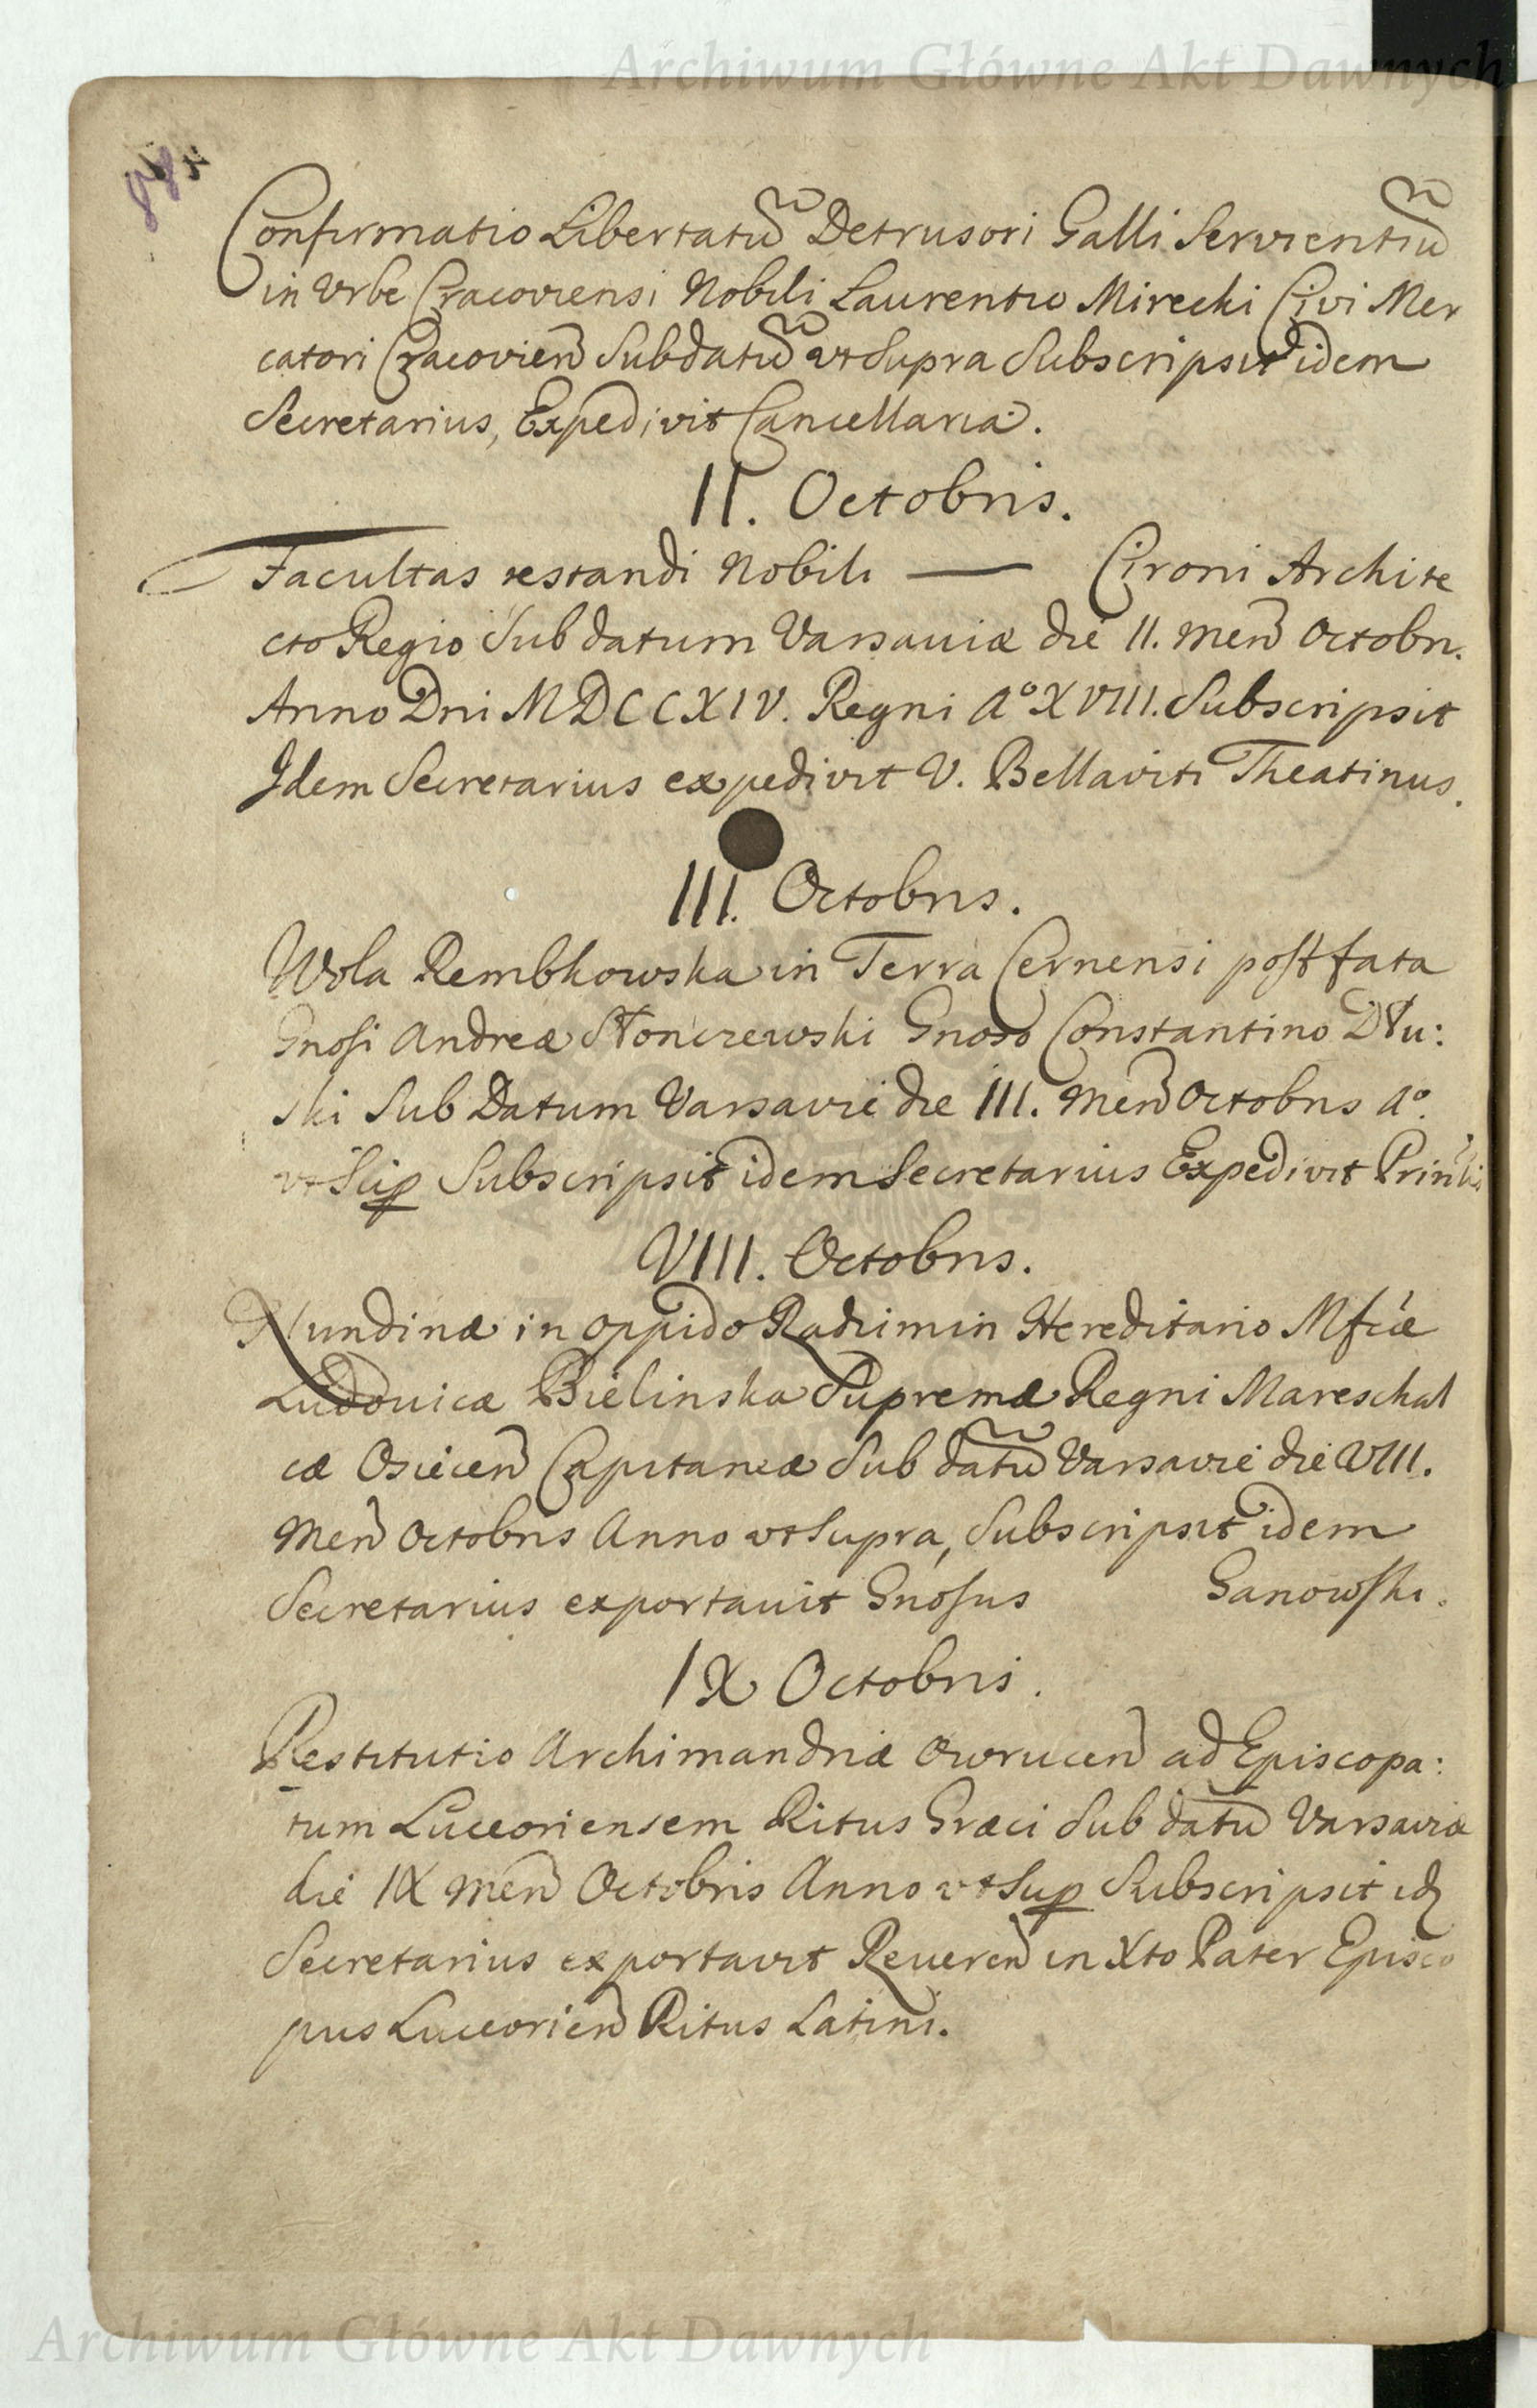 Archiwum Główne Akt Dawnych
Confirmatio Libertatũ Detrusori Galli Servientiũ
in Vrbe Cracoviensi Nobili Laurentio Mirecki Civi Mer
catori Cracovieñ Sub datũ vt Supra Subscripsit idem
Secretarius, Expedivit Cancellaria.
II. Octobris.
Facultas testandi Nobili — Cironi Archite
cto Regio Sub datum Varsaviæ die II. Meñ Octobri.
Anno Dni MDCCXIV. Regni A° XVIII. Subscripsit
Idem Secretarius expedivit V. Bellaviti Theatinus.
III. Octobris.
Wola Rembkowska in Terra Cernensi post fata
Gnosi Andreæ Słonczewski Gnoso Constantino Dłu:
ski Sub Datum Varsavie die III. Meñ Octobris A°.
vt Sup Subscripsit idem Secretarius Expedivit
VIII. Octobris.
Nundinæ in oppido Radzimin Hereditario Mficæ
Ludovicæ Bielinska Supremæ Regni Mareschal
cæ Osieceñ Capitaneæ Sub datũ Varsavie die VIII.
Meñ Octobris Anno vt Supra, Subscripsit idem
Secretarius exportauit Gnosus Ganowski.
IX Octobris.
Restitutio Archimandriæ Owruceñ ad Episcopa:
tum Luceoriensem Ritus Græci Sub datũ Varsaviæ
die IX Meñ Octobris Anno vt Sup Subscripsit id
Secretarius exportavit Revereñ in Xto Pater Episco
pus Luceorieñ Ritus Latini.
Archiwum Główne Akt Dawnych